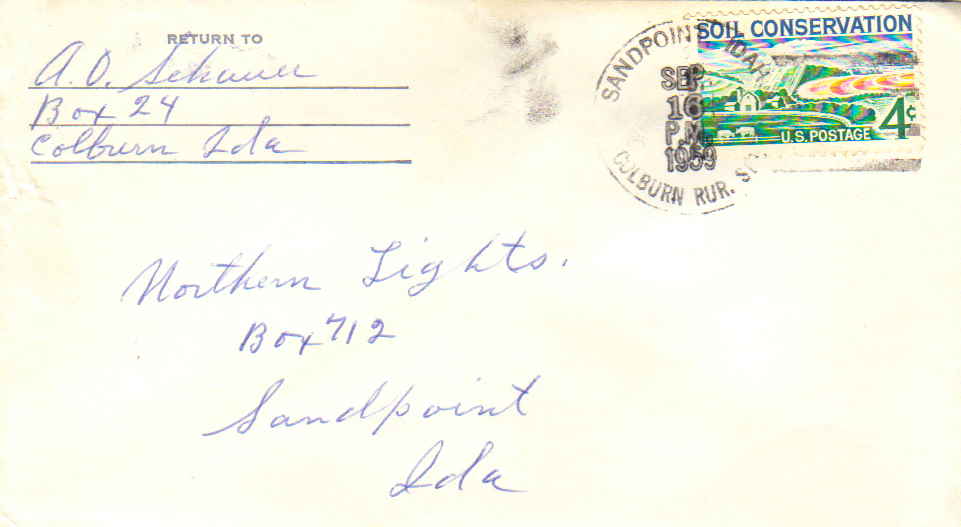 RETURN TO
A. O. Schauer
Box 24
Colburn Ida
SANDPOINT, IDAHO
SEP
16
P.M.
1959
COLBURN RUR. ST
SOIL CONSERVATION
U.S. POSTAGE 4¢
Northern Lights.
Box 712
Sandpoint
Ida